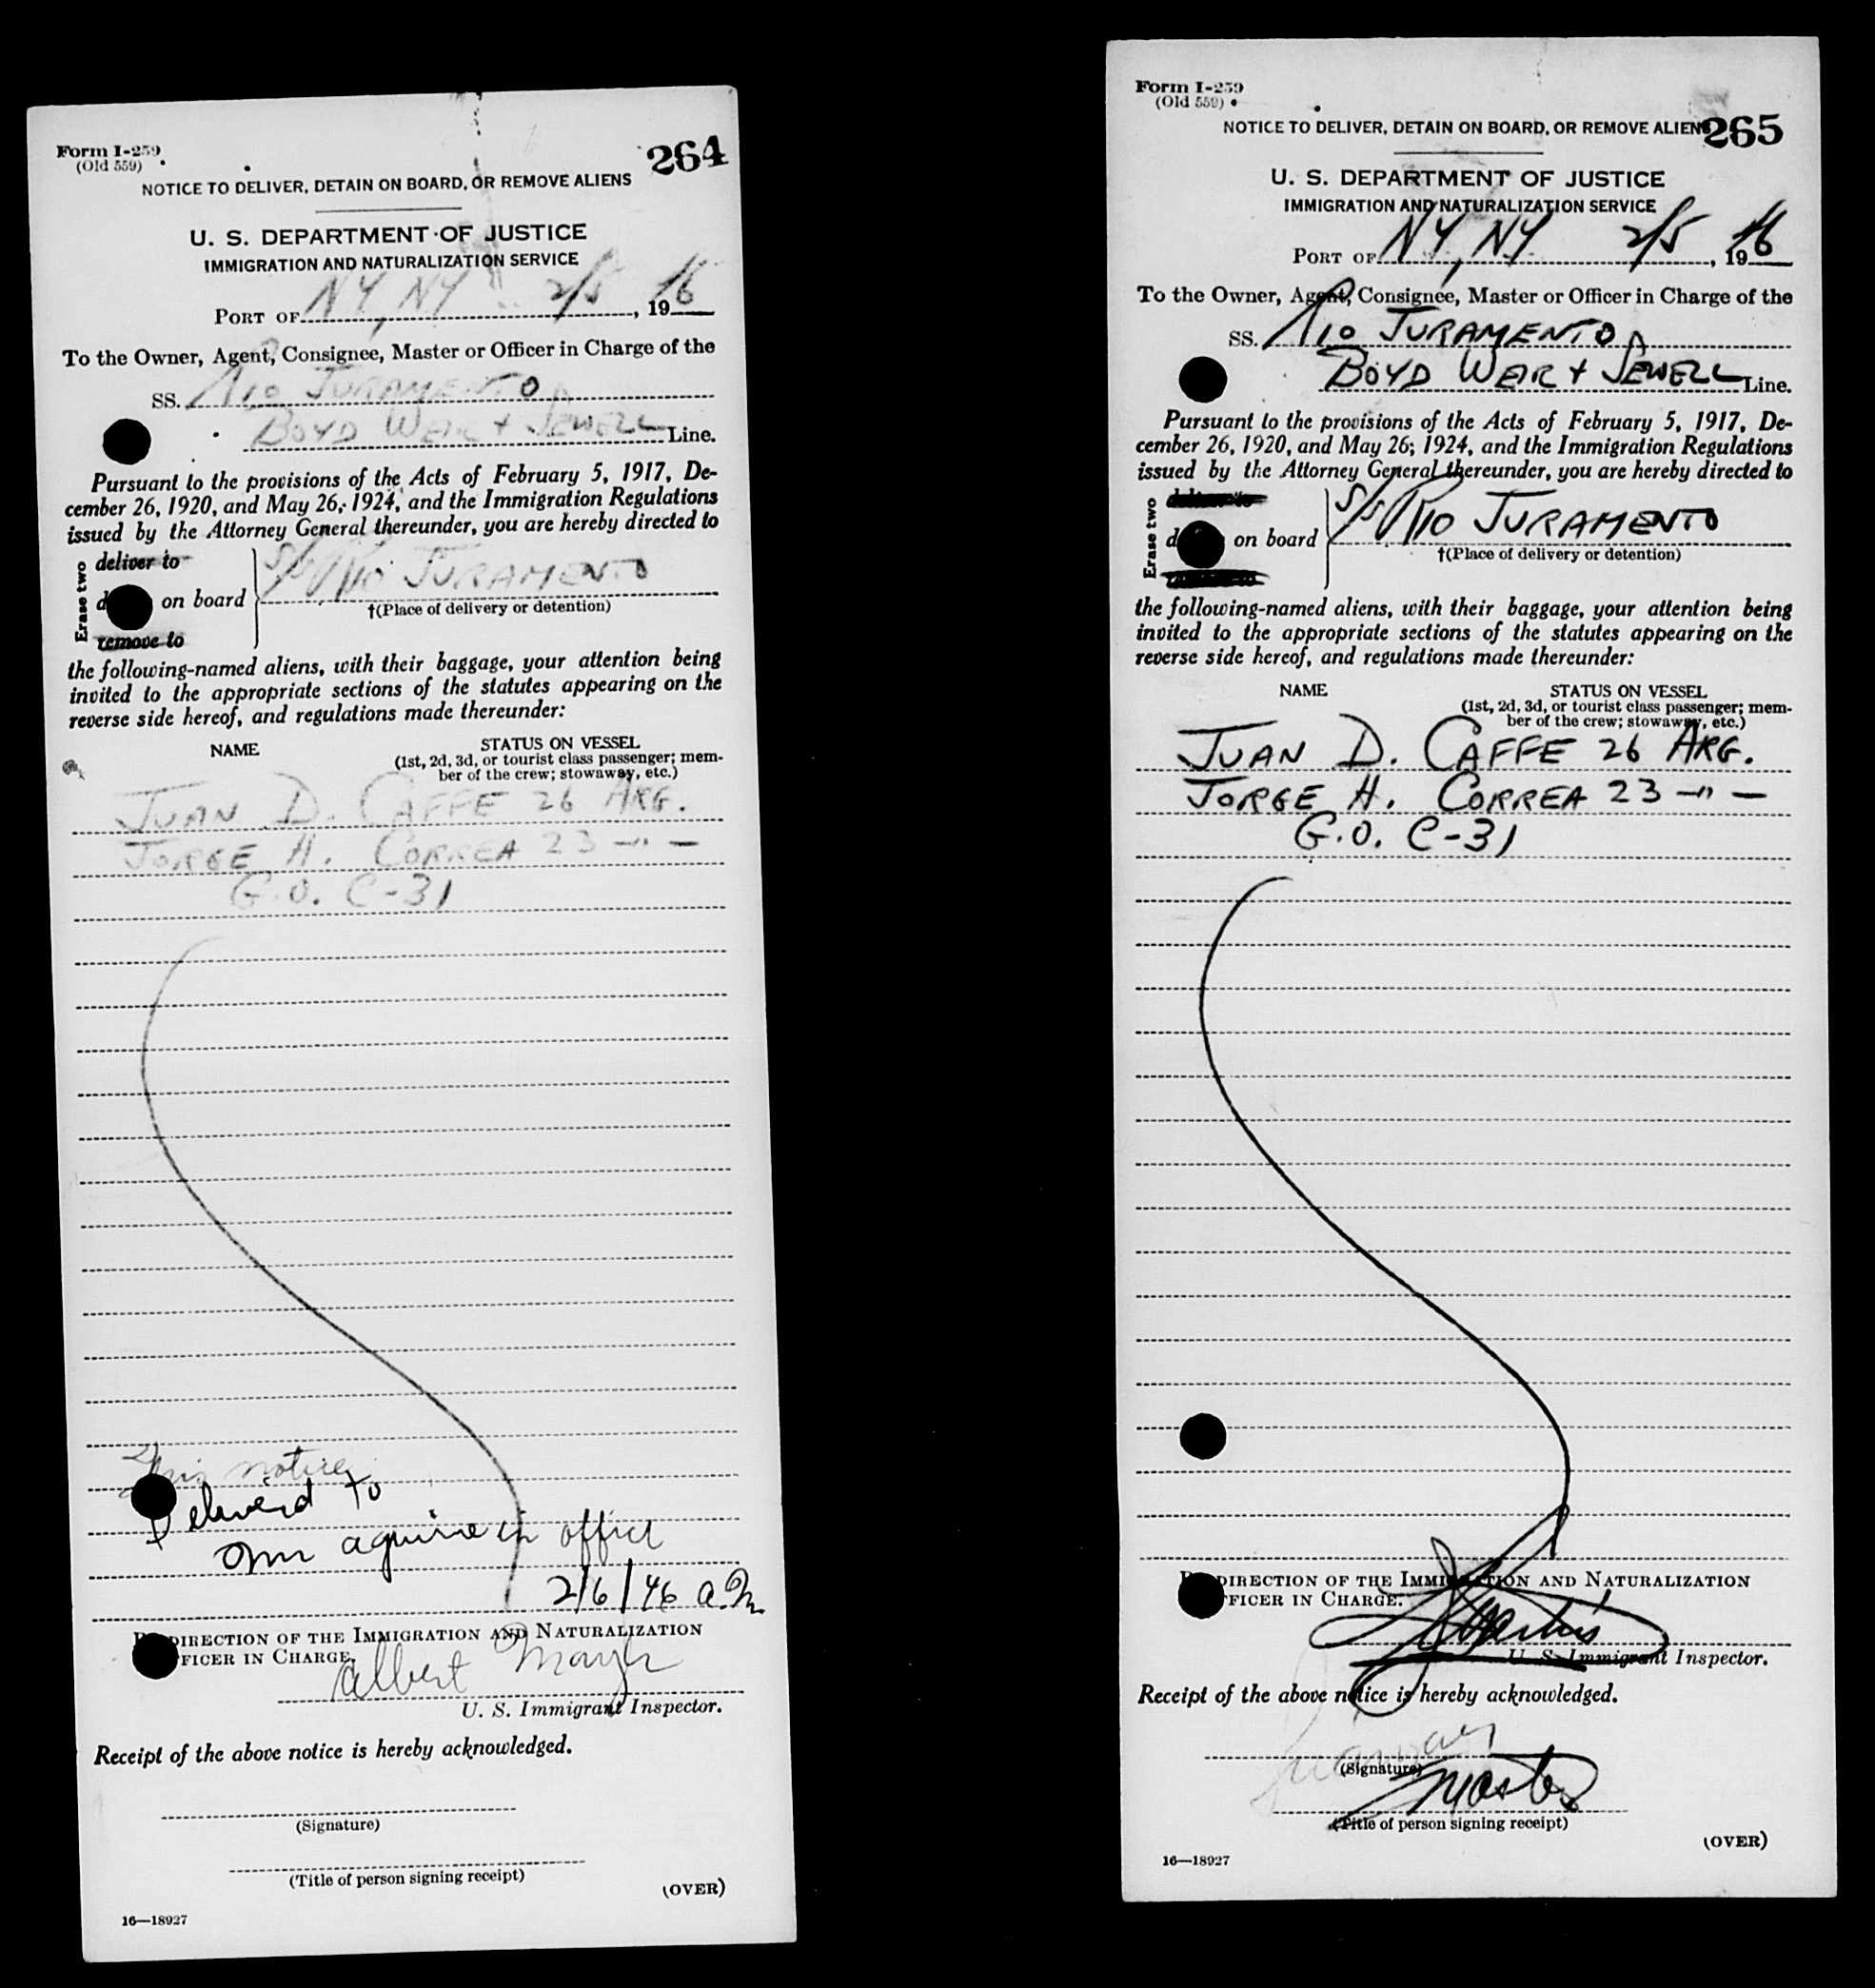 Form I-259
(Old 559)
264
NOTICE TO DELIVER, DETAIN ON BOARD, OR REMOVE ALIENS
U. S. DEPARTMENT OF JUSTICE
IMMIGRATION AND NATURALIZATION SERVICE
PORT OF NY, NY 2/5, 1946
To the Owner, Agent, Consignee, Master or Officer in Charge of the
SS. RIO JURAMENTO
BOYD WEIR + SEWELL Line.
Pursuant to the provisions of the Acts of February 5, 1917, De-
cember 26, 1920, and May 26, 1924, and the Immigration Regulations
issued by the Attorney General thereunder, you are hereby directed to
Erase two
deliver to
on board S/S RIO JURAMENTO
†(Place of delivery or detention)
remove to
the following-named aliens, with their baggage, your attention being
invited to the appropriate sections of the statutes appearing on the
reverse side hereof, and regulations made thereunder:
NAME STATUS ON VESSEL
(1st, 2d, 3d, or tourist class passenger; mem-
ber of the crew; stowaway, etc.)
JUAN D. CAFFE 26 ARG.
JORGE H. CORREA 23 —"—
G.O. C-31
This notice
Delivered to
Mr aguirre in office
2/6/46 a.m.
DIRECTION OF THE IMMIGRATION AND NATURALIZATION
FICER IN CHARGE.
Albert Mayer
U. S. Immigrant Inspector.
Receipt of the above notice is hereby acknowledged.
(Signature)
(Title of person signing receipt)
(OVER)
16—18927
Form I-259
(Old 559)
265
NOTICE TO DELIVER, DETAIN ON BOARD, OR REMOVE ALIENS
U. S. DEPARTMENT OF JUSTICE
IMMIGRATION AND NATURALIZATION SERVICE
PORT OF NY, NY 2/5, 1946
To the Owner, Agent, Consignee, Master or Officer in Charge of the
SS. RIO JURAMENTO
BOYD WEIR + SEWELL Line.
Pursuant to the provisions of the Acts of February 5, 1917, De-
cember 26, 1920, and May 26, 1924, and the Immigration Regulations
issued by the Attorney General thereunder, you are hereby directed to
Erase two
on board S/S RIO JURAMENTO
†(Place of delivery or detention)
the following-named aliens, with their baggage, your attention being
invited to the appropriate sections of the statutes appearing on the
reverse side hereof, and regulations made thereunder:
NAME STATUS ON VESSEL
(1st, 2d, 3d, or tourist class passenger; mem-
ber of the crew; stowaway, etc.)
JUAN D. CAFFE 26 ARG.
JORGE H. CORREA 23 —"—
G.O. C-31
DIRECTION OF THE IMMIGRATION AND NATURALIZATION
FICER IN CHARGE.
U. S. Immigrant Inspector.
Receipt of the above notice is hereby acknowledged.
(Signature)
Master
(Title of person signing receipt)
(OVER)
16—18927